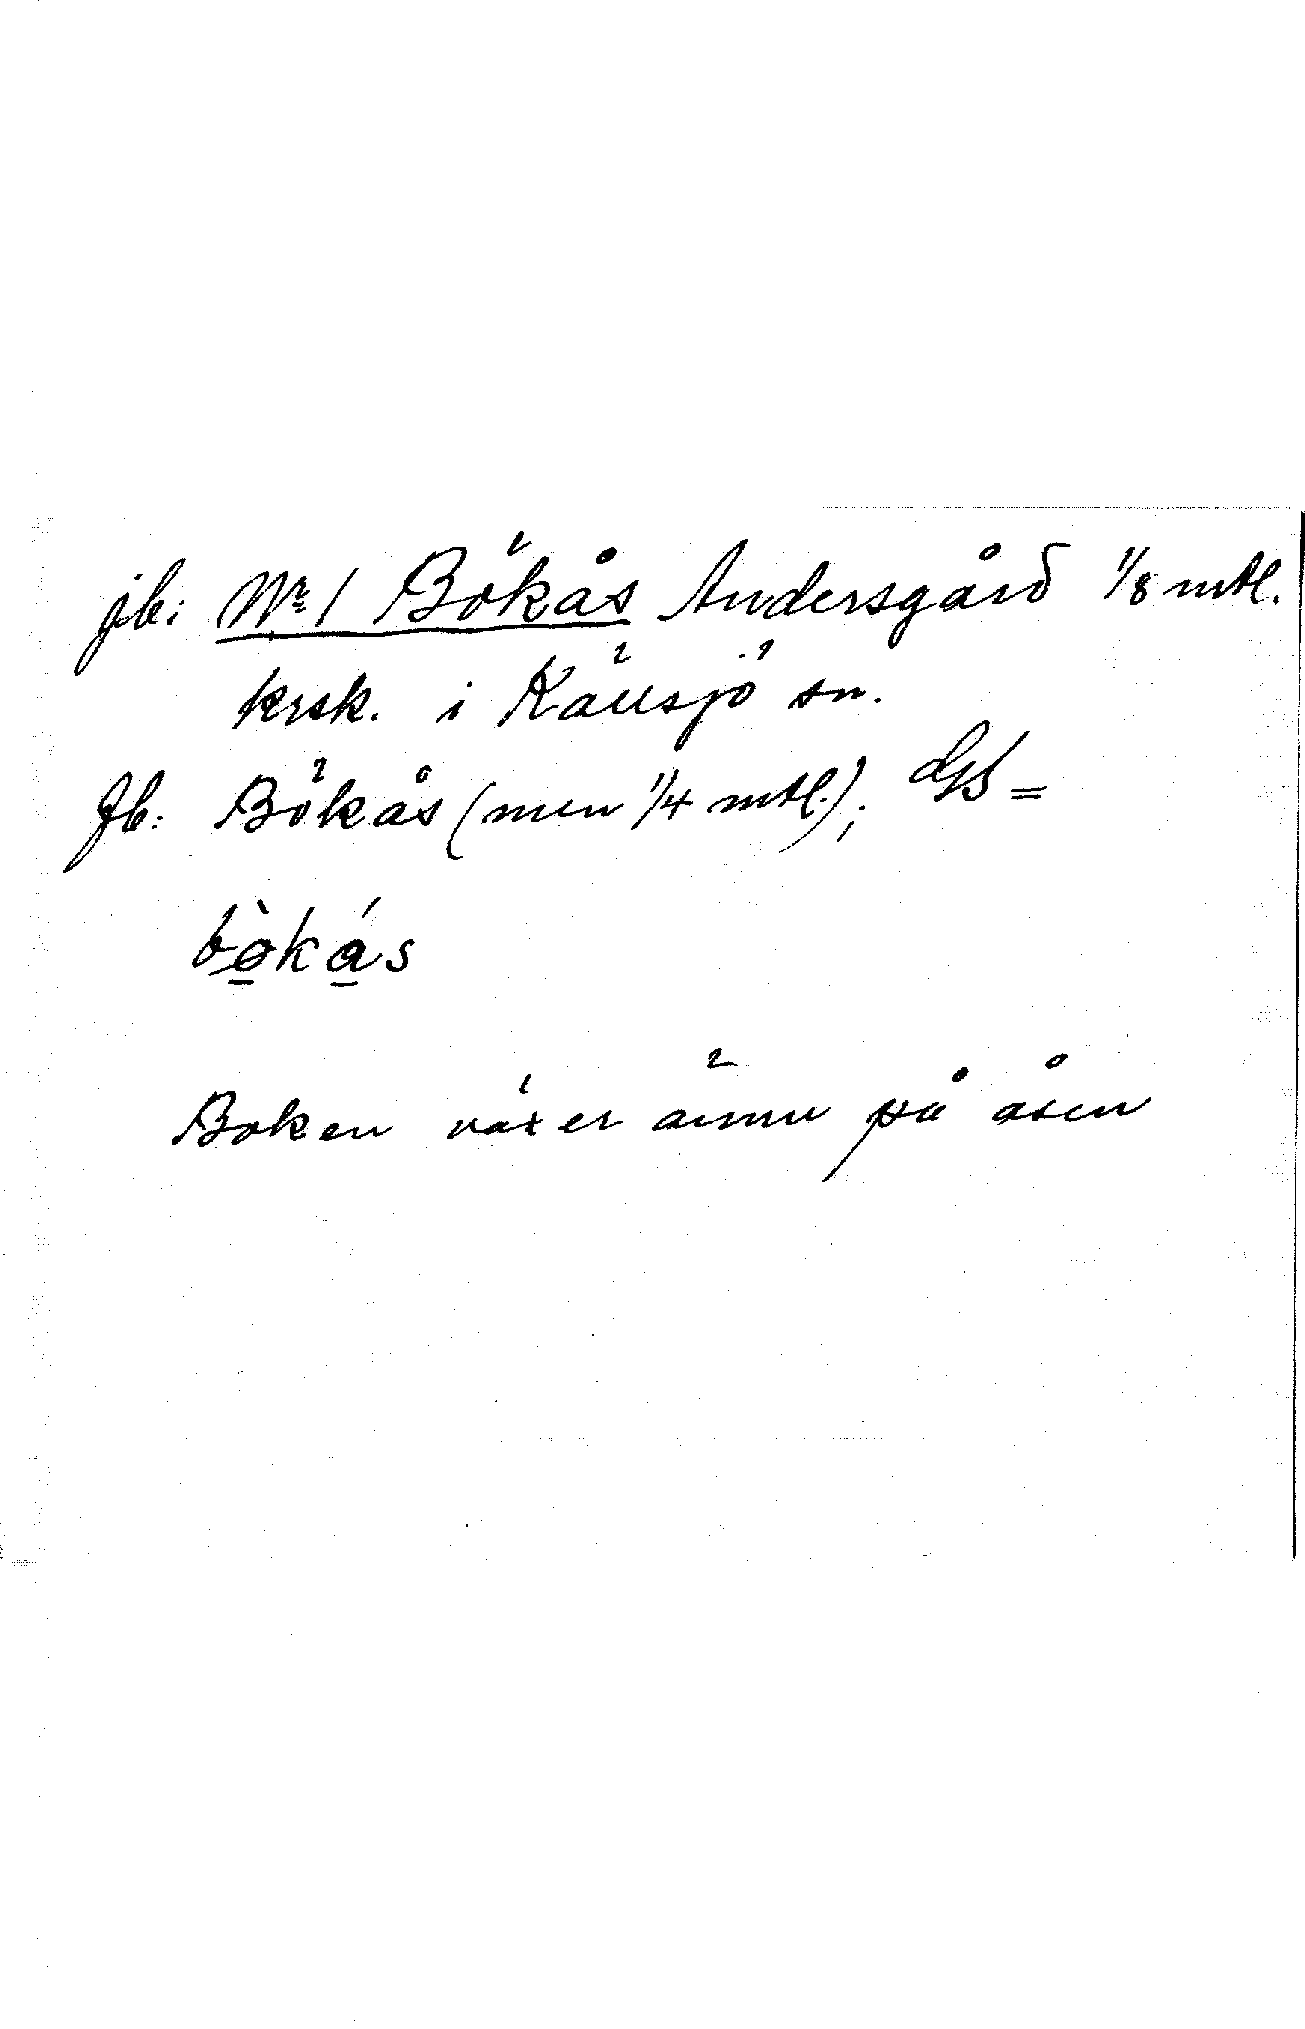 jb: Nr 1 Bökås Andersgård 1/8 mtl.
krsk. i Källsjö sn.
Jb: Bökås (men 1/4 mtl.); GS =
bo̱̊̀ká̱s
Boken växer ännu på åsen